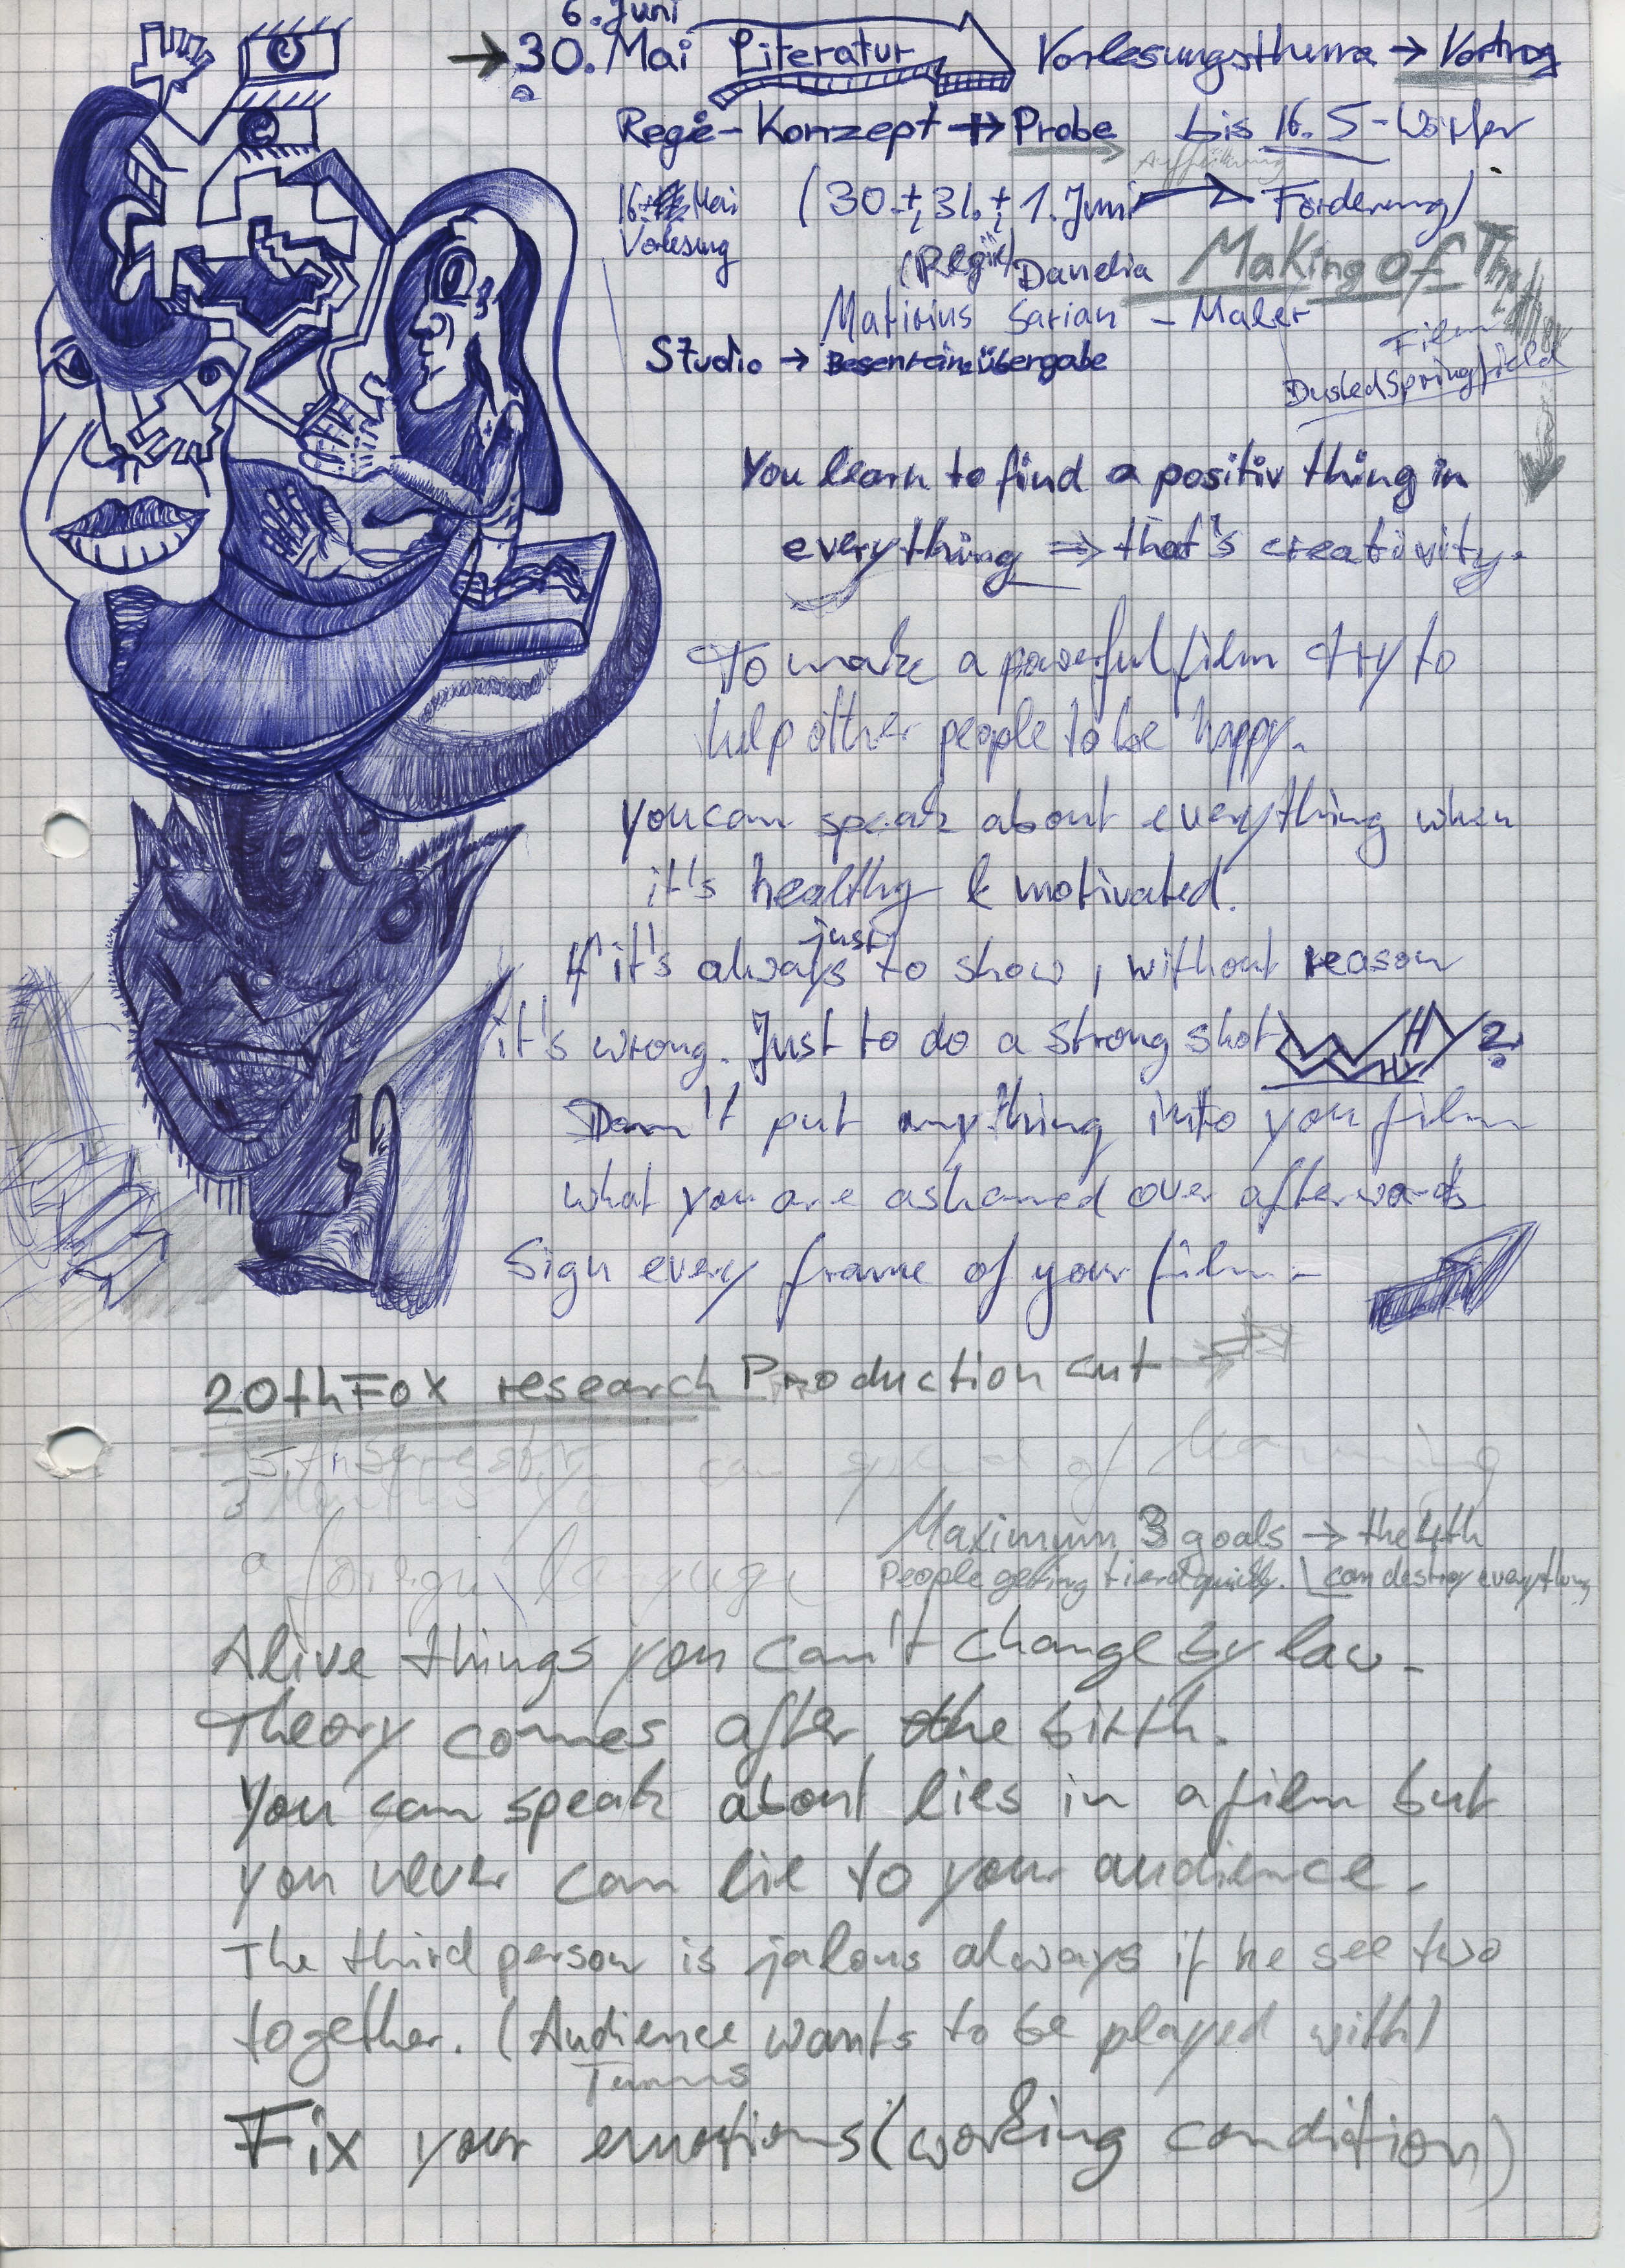 6. Juni
→ 30. Mai Literatur Vorlesungsthema → Vortrag
Regie-Konzept → Probe bis 16. 5 - Wörter
Aufführung
16. Mai (30. + 31. + 1. Juni → Förderung)
Vorlesung
(Regie) Danelia Making of
Matirius Sarian - Maler
Film
Studio → Besenreinübergabe
DustedSpringfield
You learn to find a positiv thing in
everything ⇒ that's creativity.
To make a powerful film try to
help other people to be happy.
you can speak about everything when
it's healthy & motivated.
just
If it's always to show, without reason
it's wrong. Just to do a strong shot WHY?
WHY
Don't put anything into you film
what you are ashamed over afterwards
Sign every frame of your film.
20thFox research Production cut →
a foreign language
Maximum 3 goals → the 4th
People geting tierd quickly. can destroy everything
Alive things you can't change by law.
Theory comes after the birth.
You can speak about lies in a film but
you never can lie to your audience.
The third person is jalous always if he see two
together. (Audience wants to be played with)
Fix your emotions (working condition)